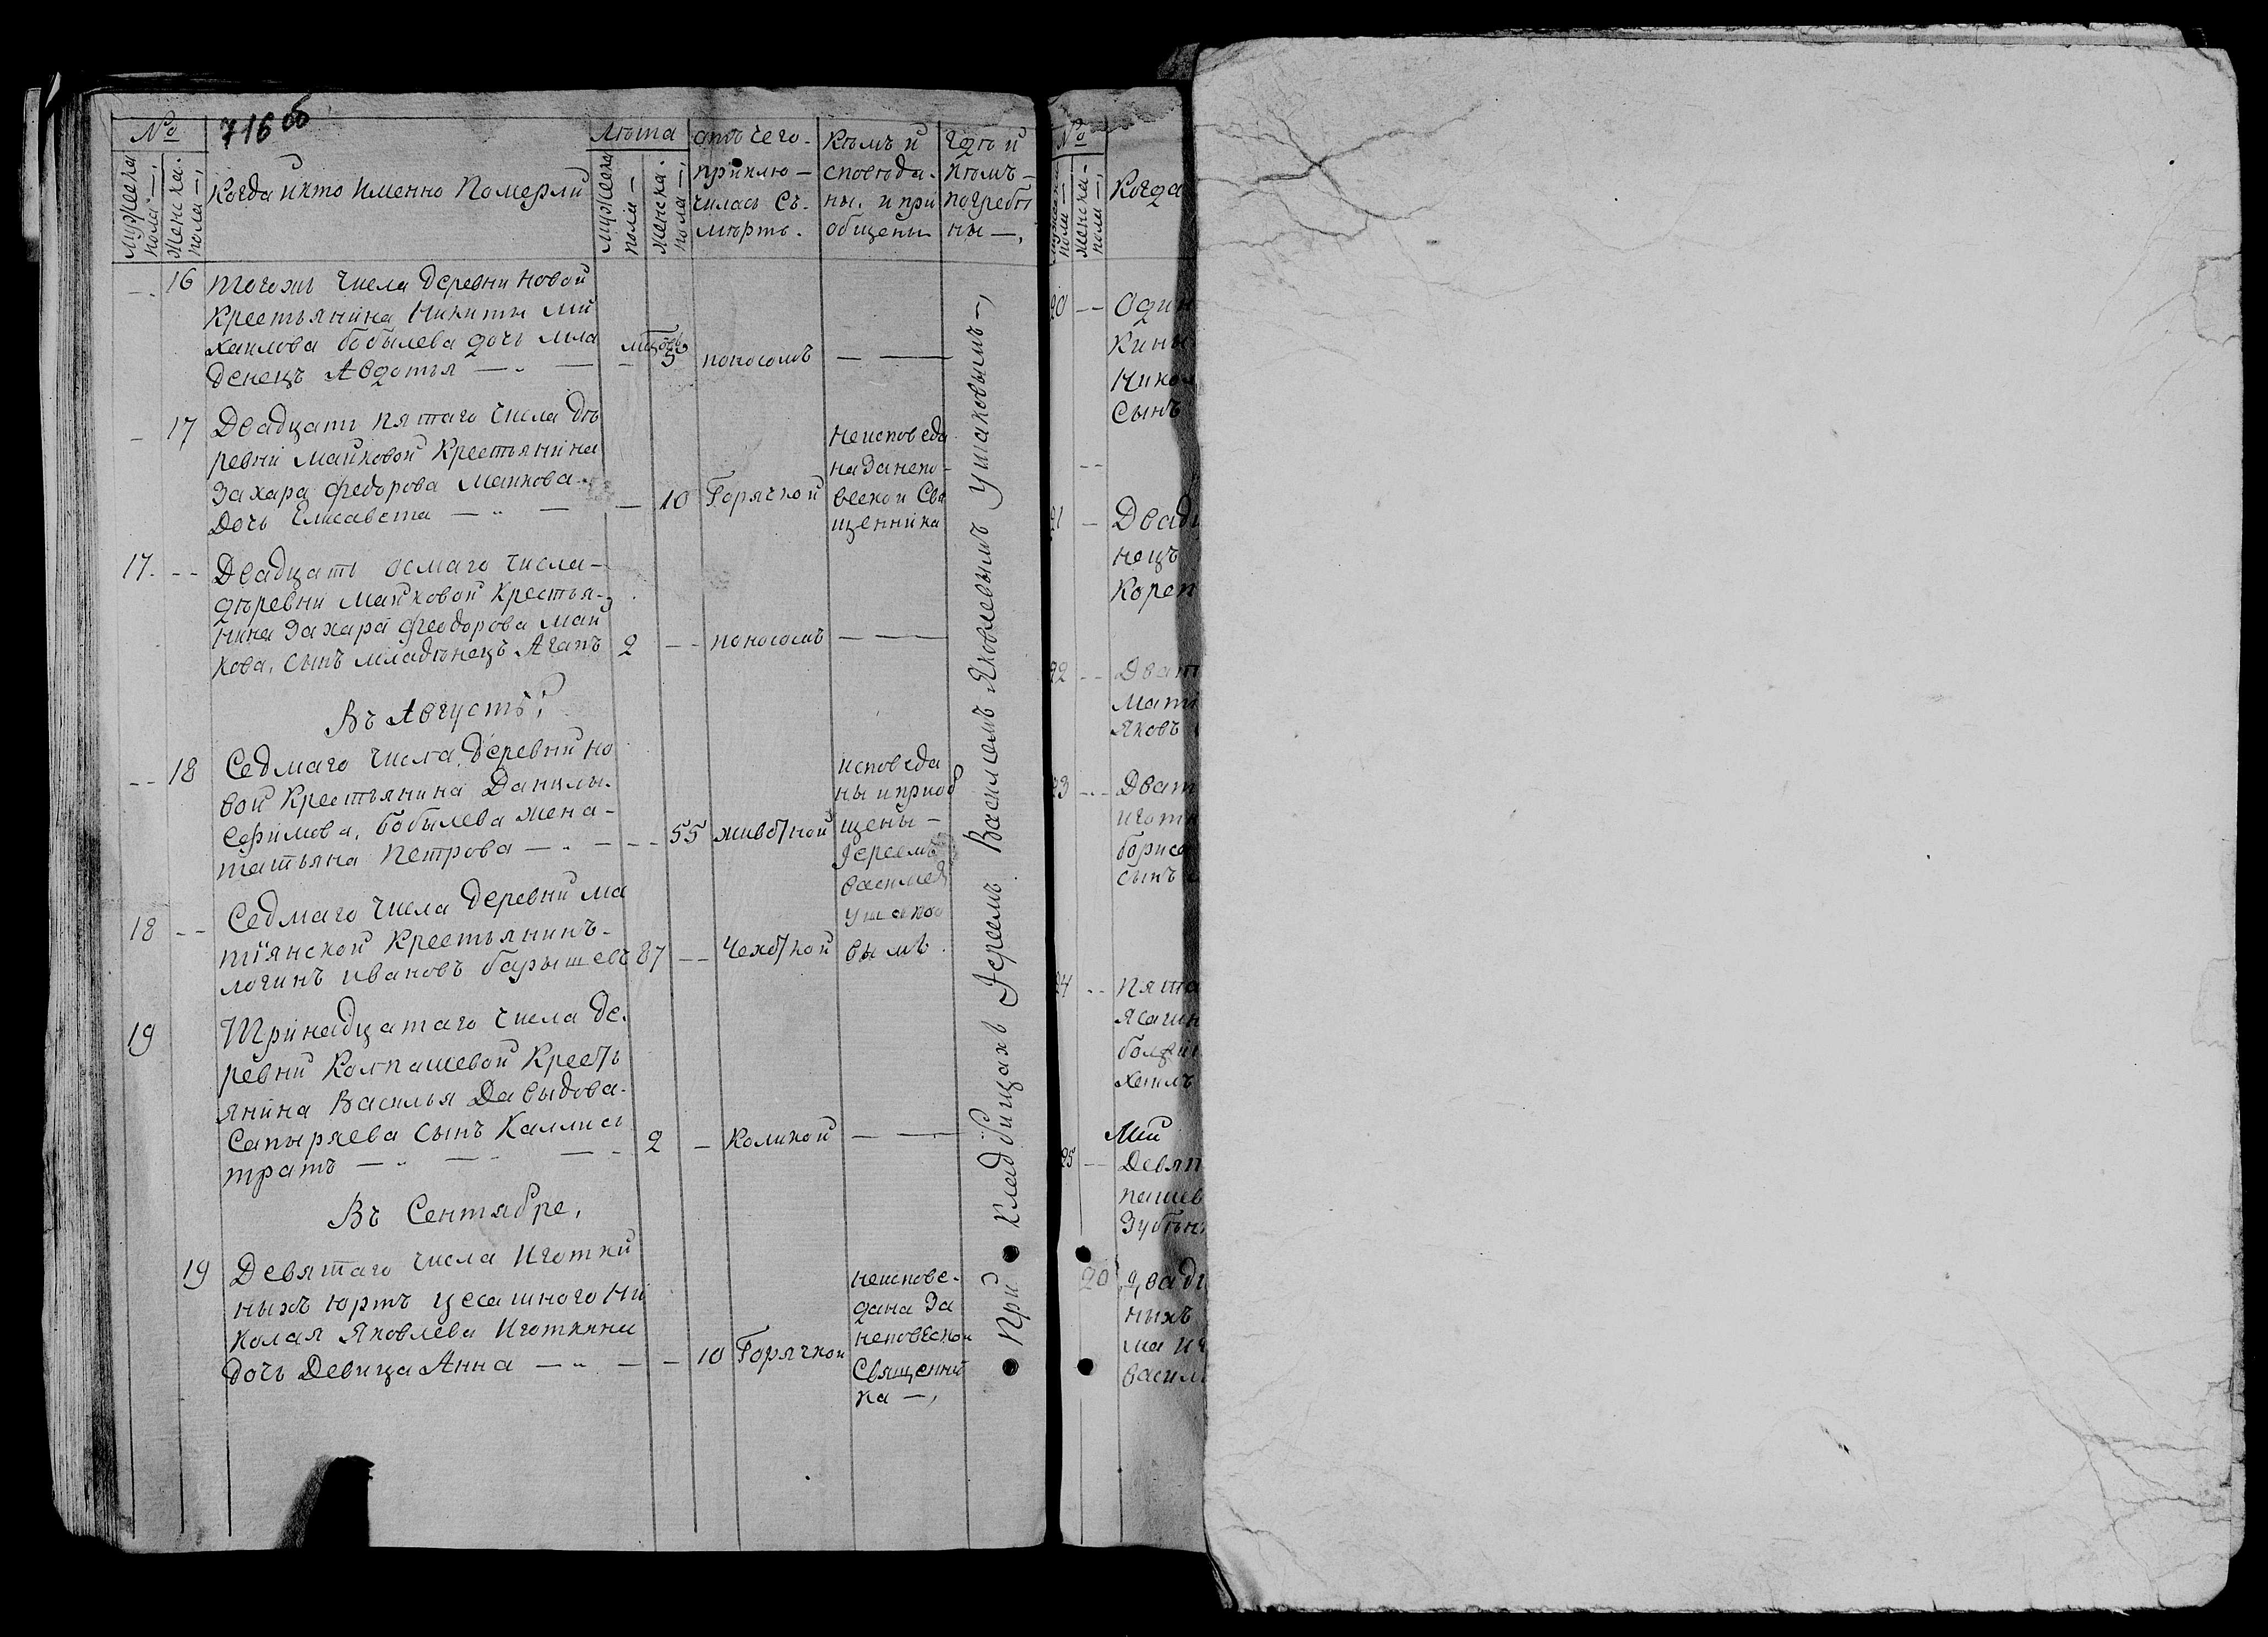 716 об
№
мужеска пола —,
женска. пола —,
Когда икто Именно Померли
Лѣта
мужеска пола —
женска. пола —,
отъ чего.
приклю—
чилась Съ.
мѣрть.
Кѣмъ и
споведа.
ны. и при
общены
Гдѣ и
кѣмъ—
погребѣ
ны —,
—. 16 тогожъ числа деревни новой
Крестьянина Никиты Ми
хаилова бобылева дочь мла
денецъ Авдотья —.. — — 5 поносомъ — —
— 17 Двадцать пятаго числа дѣ
ревни Майковой Крестьянина
Захара федорова Маикова.
Дочь Елисавета —..— — 10 Горячкой
неисповеда
на Занепо-
вескои Свя
щенника
17. -- Двадцать осмаго числа—
дѣревни майковой Крестья-
нина Захара феодорова Май
кова, сынъ младѣнецъ Агапъ 2 -- поносомъ — —
Въ Августѣ,
-- 18 Седмаго числа, деревни но
вой Крестьянина Данилы.
Ефимова, бобылева жена-
татьяна Петрова —.. — -- 55 живот/ной
исповеда
ны и приоб
щены —
Іереемъ
василед
ушаков
вымъ.
18 -- Седмаго числа деревни ма
тіянской Крестьянинъ-
логинъ ивановъ барышевъ 87 -- Чехот/кой
19 Тринадцатаго числа де.
ревни Колпашевой Крест/ь
янина Василья Давыдова-
Сапыряева сынъ Каллис
тратъ —.. — .. — - 2 — Коликой — —
Въ Сентябре,
19 Девятаго числа Иготки
ныхъ юртъ ясашного Ни
колая Яковлева Иготкина
дочь Девица Анна —.. — — 10 Горячкой
неиспове-
дана За
неповескои
Священни
ка —,
При Кладбищахъ Іереемъ Василемъ Яковлевымъ Ушаковымъ —,
№
женска-
Когда
20 --
Сынъ
--
21 —
нецъ
22 --
Яковъ
23 -.-
сынъ
24 --
25 --
20
ныхъ